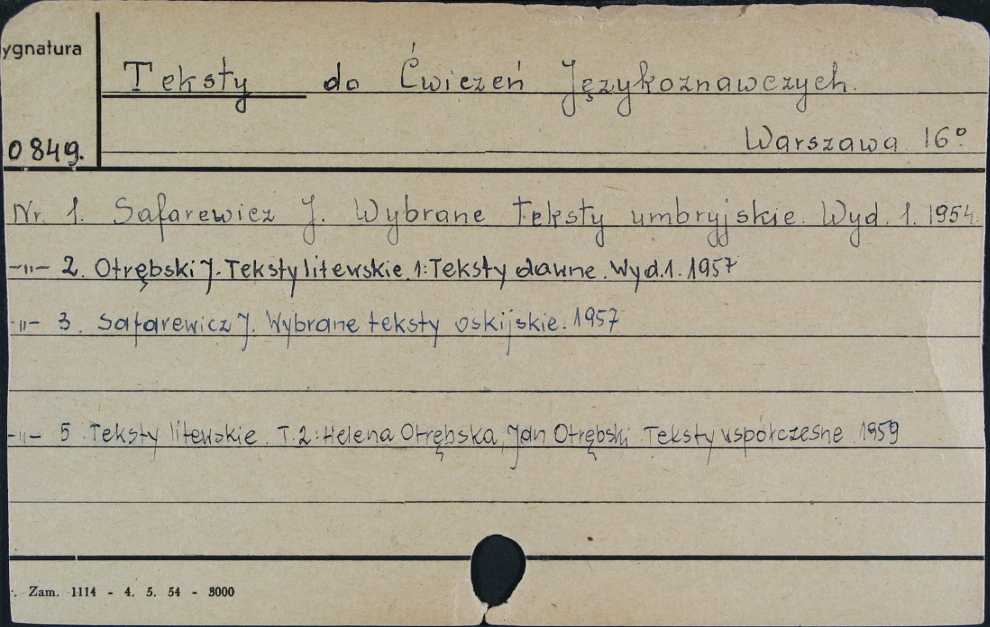 ygnatura
Teksty do Ćwiczeń Językoznawczych.
0849.
Warszawa 16°
Nr. 1. Safarewicz J. Wybrane teksty umbryjskie. Wyd. 1. 1954.
-"- 2. Otrębski J. Teksty litewskie. 1: Teksty dawne. Wyd. 1. 1957
-"- 3. Safarewicz J. Wybrane teksty oskijskie. 1957
-"- 5. Teksty litewskie. T. 2: Helena Otrębska, Jan Otrębski. Teksty współczesne 1959
. Zam. 1114 - 4. 5. 54 - 3000